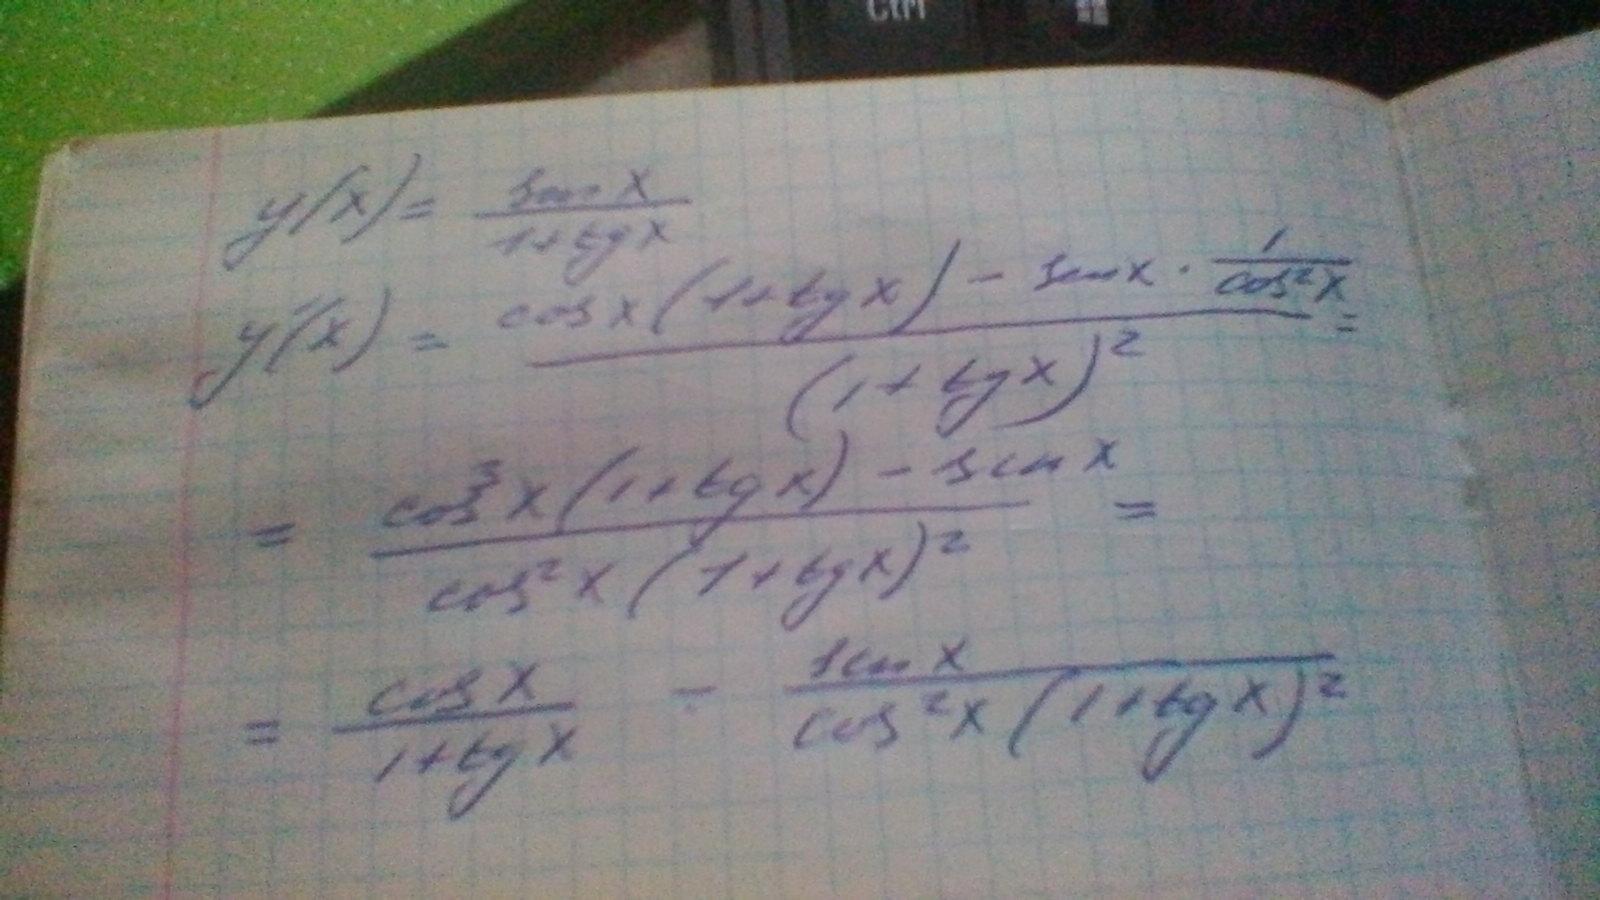 Ctrl
y(x) = sin x / (1 + tg x)
y'(x) = (cos x (1 + tg x) - sin x · 1/cos² x) / (1 + tg x)² =
= (cos³ x (1 + tg x) - sin x) / (cos² x (1 + tg x)²) =
= cos x / (1 + tg x) - sin x / (cos² x (1 + tg x)²)